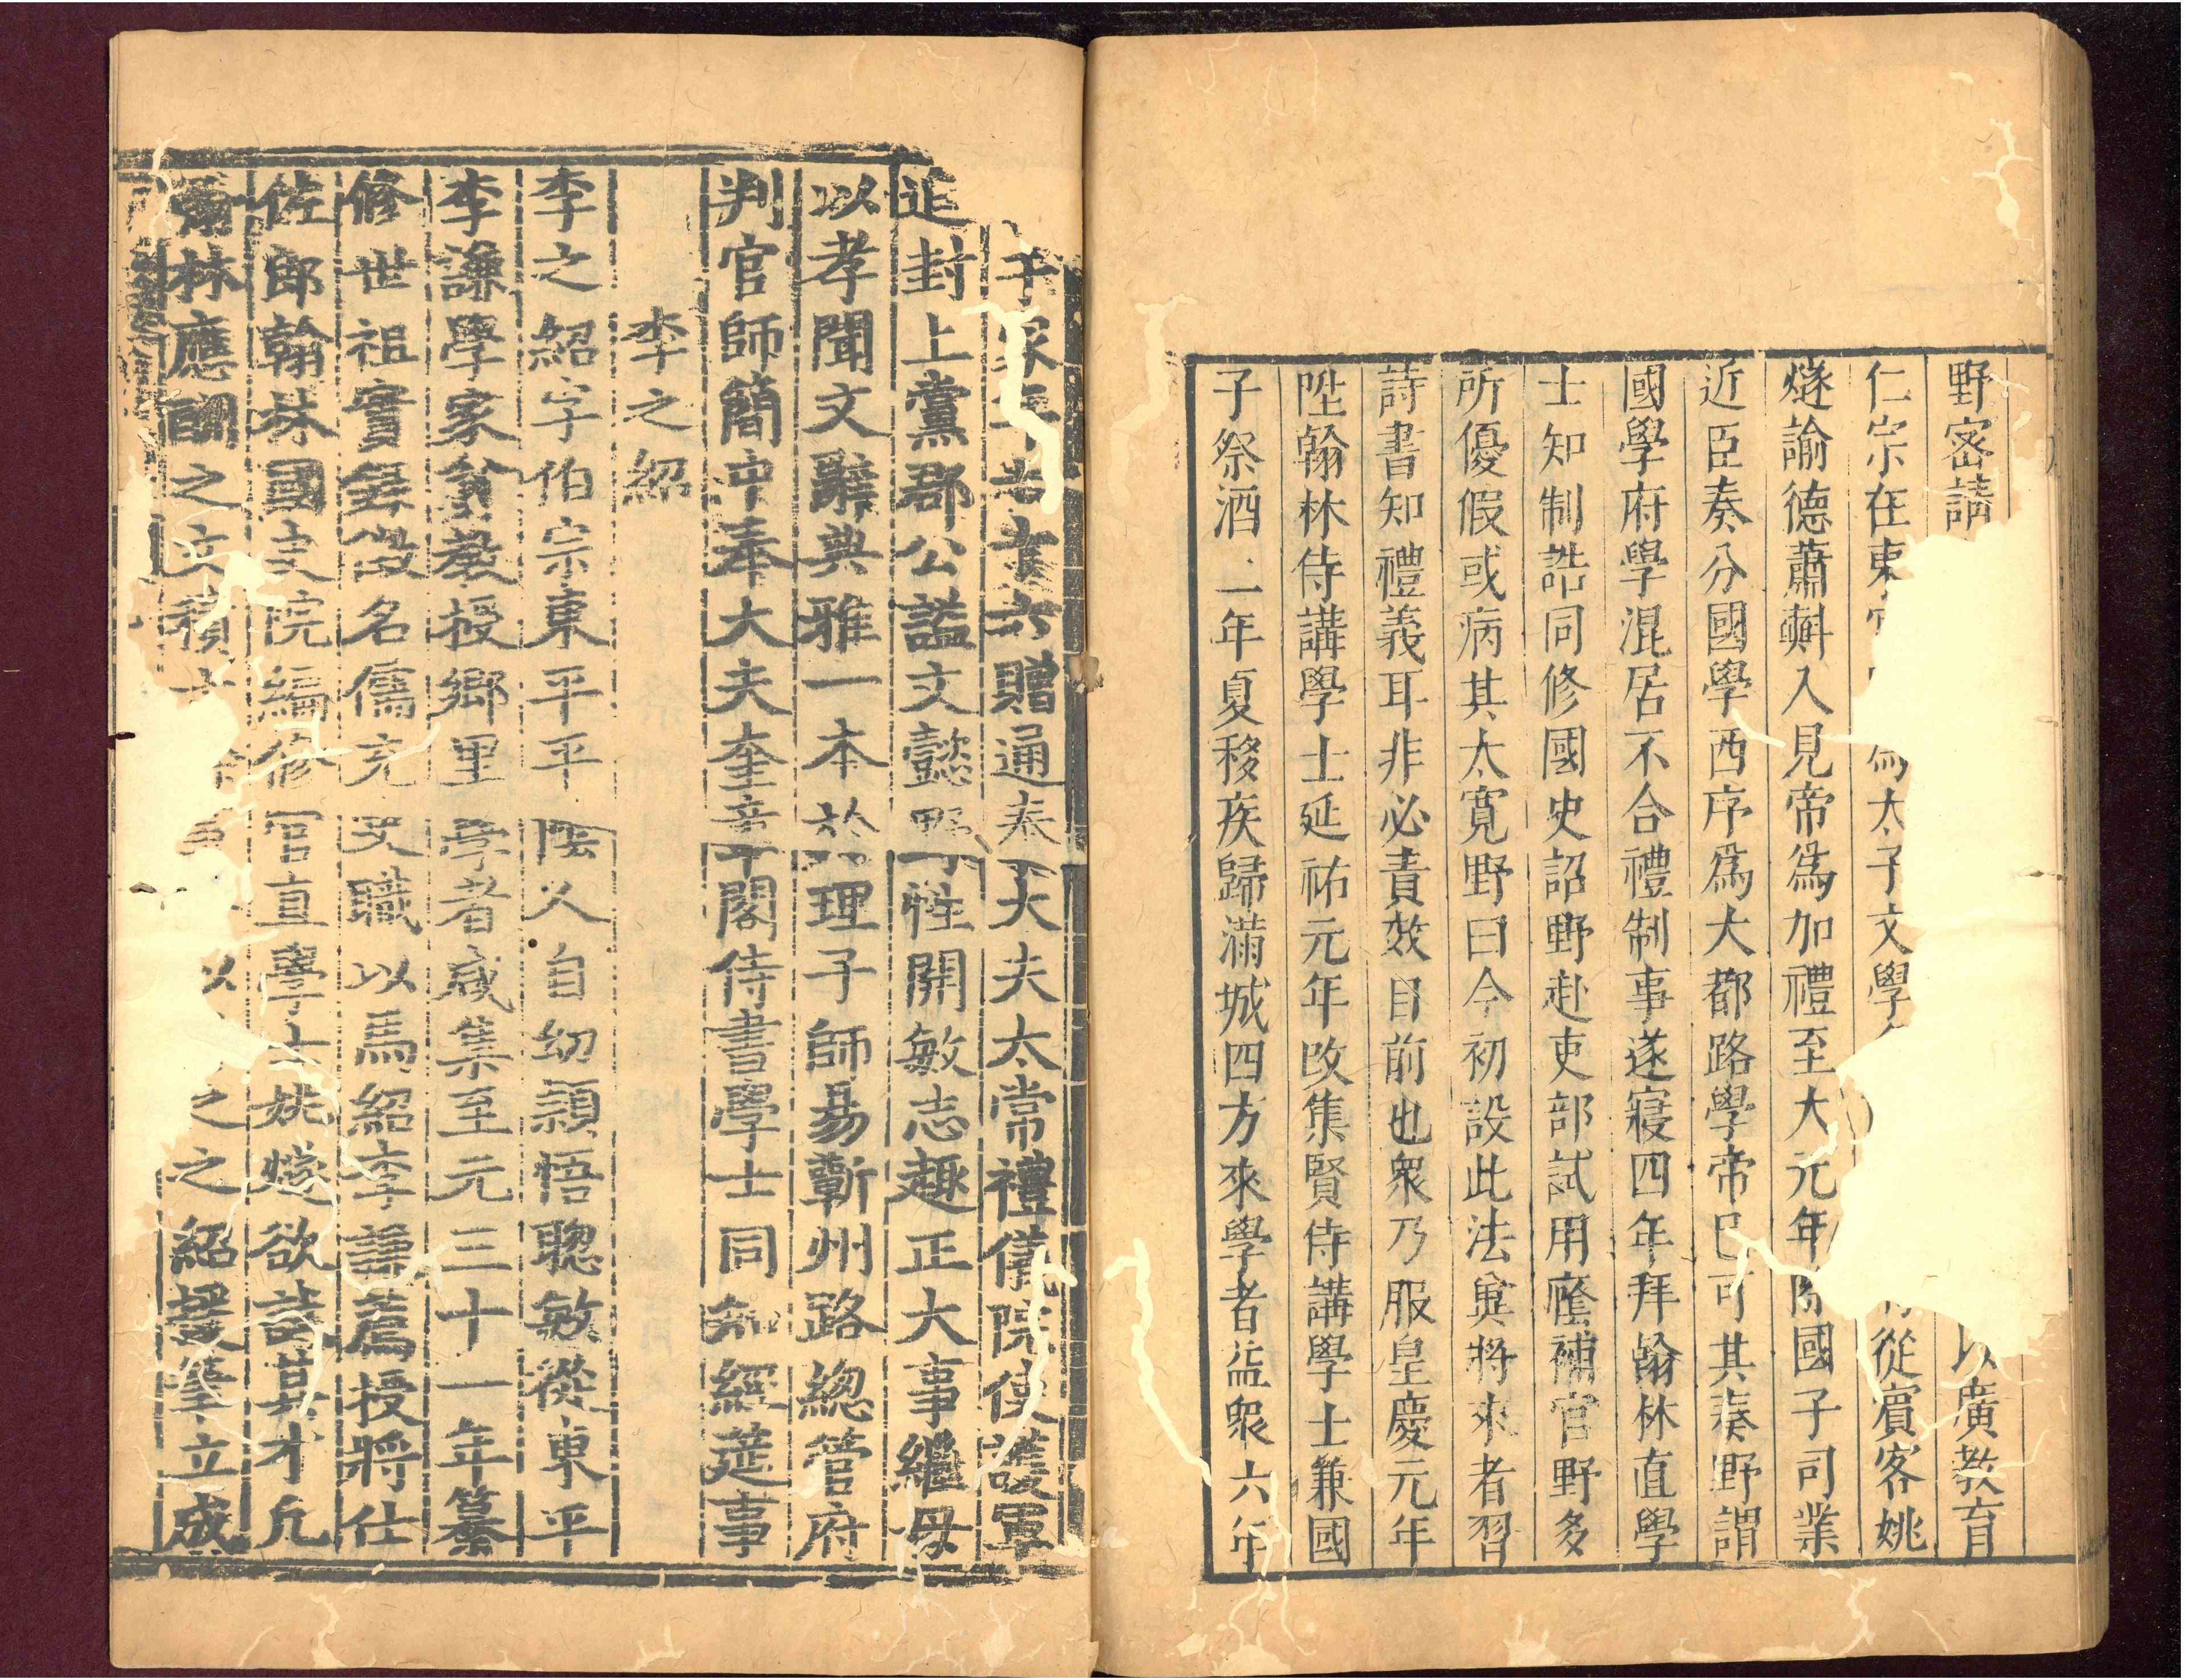 野密請以廣教育
仁宗在東為太子文學從賓客姚
燧諭德蕭㪺入見帝為加禮至大元年除國子司業
近臣奏分國學西序為大都路學帝已可其奏野謂
國學府學混居不合禮制事遂寢四年拜翰林直學
士知制誥同修國史詔野赴吏部試用廕補官野多
所優假或病其太寬野曰今初設此法冀將來者習
詩書知禮義耳非必責效目前也衆乃服皇慶元年
陞翰林侍講學士延祐元年改集賢侍講學士兼國
子祭酒二年夏移疾歸滿城四方來學者益衆六年
于家年六贈通奉大夫太常禮儀院使護軍
追封上黨郡公謚文懿野性開敏志趣正大事繼母
以孝聞文辭典雅一本於理子師易蘄州路總管府
判官師簡中奉大夫奎章閣侍書學士同知經筵事
李之紹
李之紹字伯宗東平平陰人自幼頴悟聰敏從東平
李謙學家貧教授鄉里學者咸集至元三十一年纂
修世祖實錄徵名儒充史職以馬紹李謙薦授將仕
佐郎翰林國史院編修官直學士姚燧欲試其才凡
翰林應酬之文積之之紹援筆立成